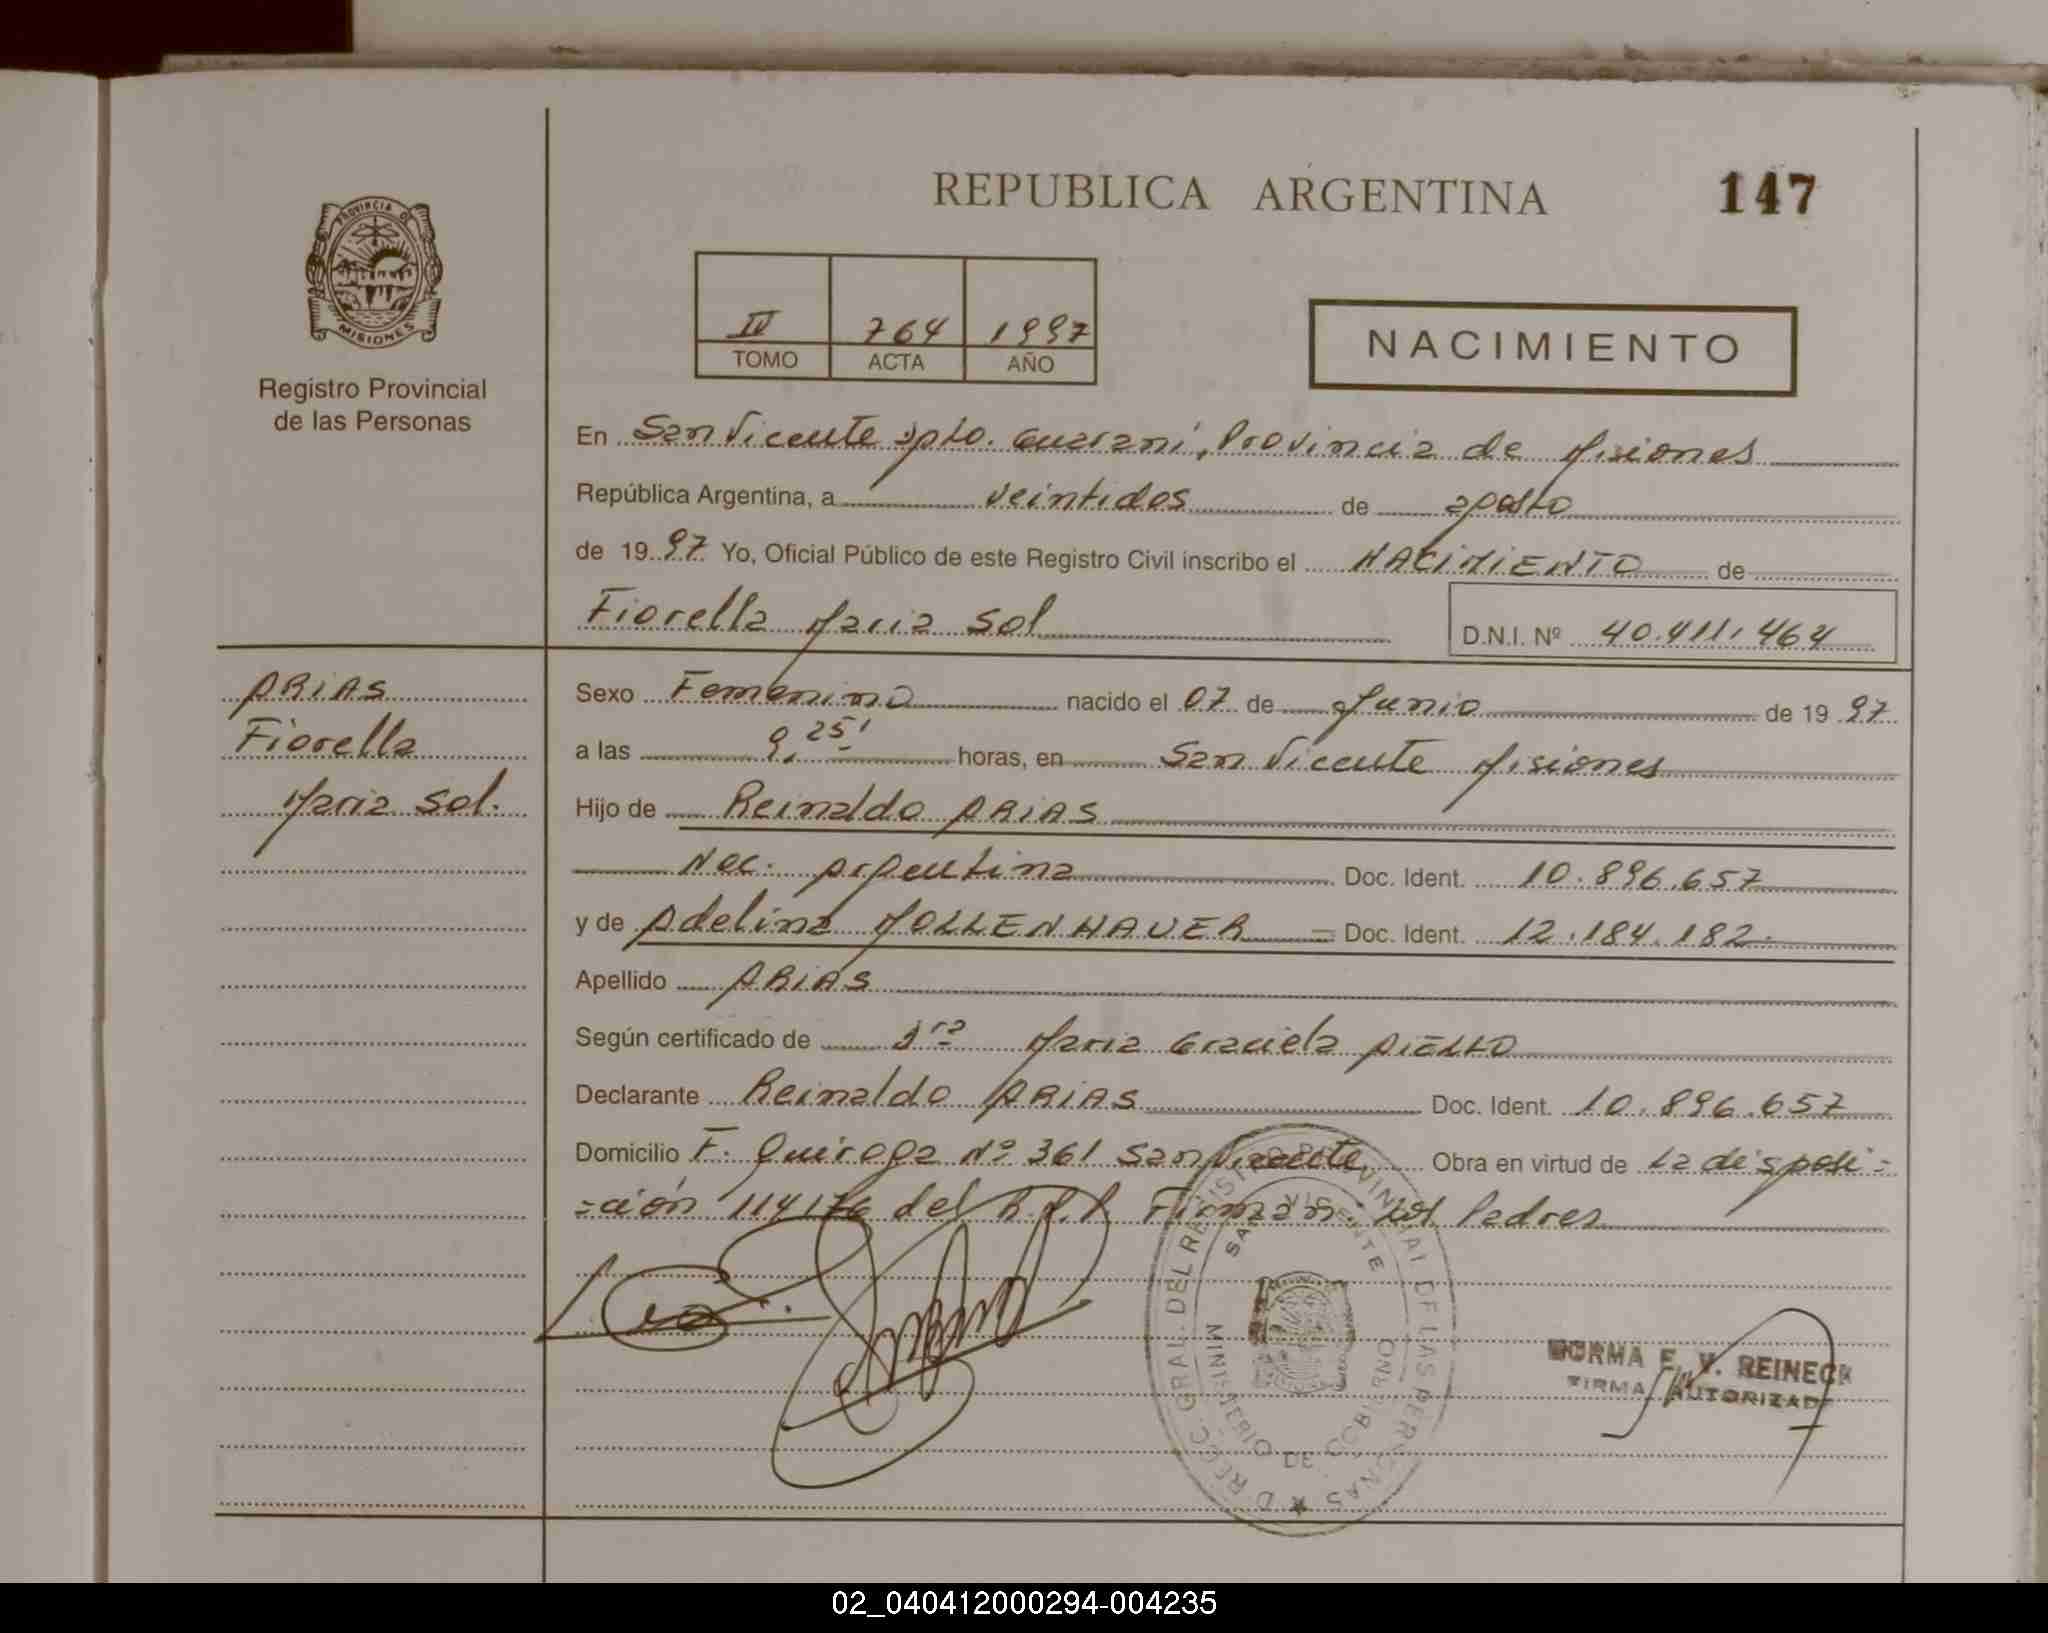 REPUBLICA ARGENTINA
147
PROVINCIA DE
MISIONES
Registro Provincial
de las Personas
IV 764 1997
TOMO ACTA AÑO
NACIMIENTO
En San Vicente Dpto. Guaraní, Provincia de Misiones
República Argentina, a veintidos de agosto
de 1997 Yo, Oficial Público de este Registro Civil inscribo el NACIMIENTO de
Fiorella Maria Sol
D.N.I. Nº 40.411.464
ARIAS
Fiorella
Maria Sol.
Sexo Femenino nacido el 07 de Junio de 1997
a las 9,25' horas, en San Vicente Misiones
Hijo de Reinaldo ARIAS
Nac. Argentina Doc. Ident. 10.896.657
y de Adelina MOLLENHAUER Doc. Ident. 12.184.182.
Apellido ARIAS
Según certificado de Maria Graciela
Declarante Reinaldo ARIAS Doc. Ident. 10.896.657
Domicilio F. Quiroga Nº 361 San Vicente Obra en virtud de la disposi=
=ción 114/76 del Firman: los Padres
DIRECC. GRAL. DEL REGISTRO PROVINCIAL DE LAS PERSONAS
SAN VICENTE
MINISTERIO DE GOBIERNO
NORMA E. V. REINECK
FIRMA AUTORIZADA
02_040412000294-004235